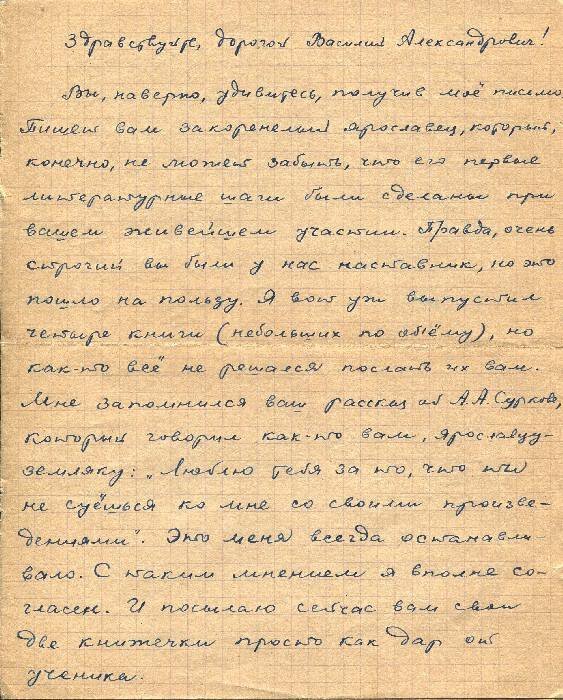 Здравствуйте, дорогой Василий Александрович!
Вы, наверно, удивитесь, получив моё письмо.
Пишет вам закоренелый ярославец, который,
конечно, не может забыть, что его первые
литературные шаги были сделаны при
вашем живейшем участии. Правда, очень
строгий вы были у нас наставник, но это
пошло на пользу. Я вот уж выпустил
четыре книги (небольших по объёму), но
как-то всё не решался послать их вам.
Мне запомнился ваш рассказ об А.А.Суркове,
который говорил как-то вам, ярославцу-
земляку: „Люблю тебя за то, что ты
не суёшься ко мне со своими произве-
дениями". Это меня всегда останавли-
вало. С таким мнением я вполне со-
гласен. И посылаю сейчас вам свои
две книжечки просто как дар от
ученика.